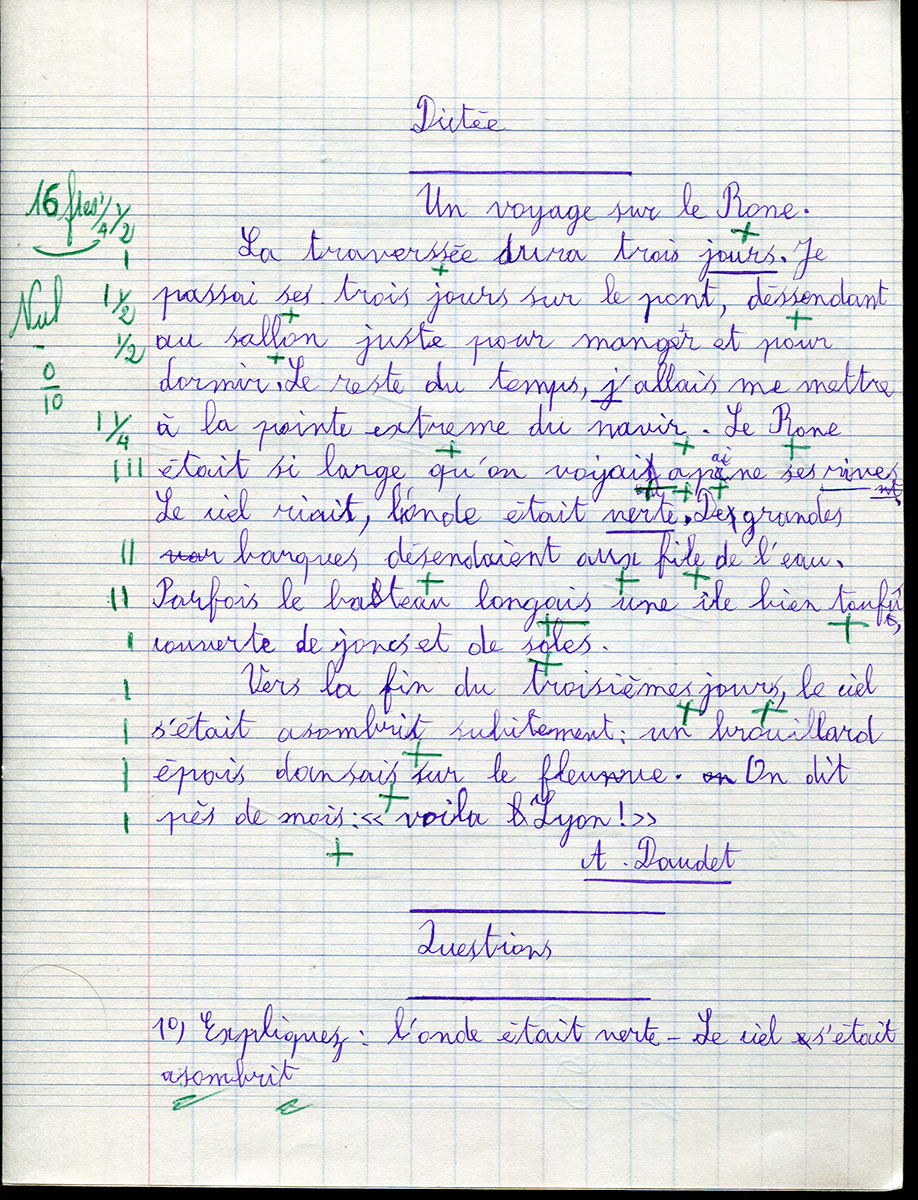 Dictée
Un voyage sur le Rone.
16 ftes 1/4 1/2
La traverssée dura trois jours. Je
1
passai ses trois jours sur le pont, déssendant
1 1/2
Nul
au sallon juste pour manger et pour
1/2
dormir. Le reste du temps, j'allais me mettre
0/10
à la pointe extreme du navir. Le Rone
1 1/4
était si large qu'on voyait apeine ses rives
III
Le ciel riait, l'onde etait verte. Des grandes
barques désendaient aux file de l'eau.
II
Parfois le bateau longais une île bien toufu
II
couverte de joncs et de soles.
I
Vers la fin du troisièmes jours, le ciel
I
s'était asombrit subitement: un brouillard
I
épais dansais sur le fleuve. On dit
I
près de mois: « voila Lyon! »
I
A. Daudet
Questions
1°) Expliquez: l'onde était verte - Le ciel s'était
asombrit